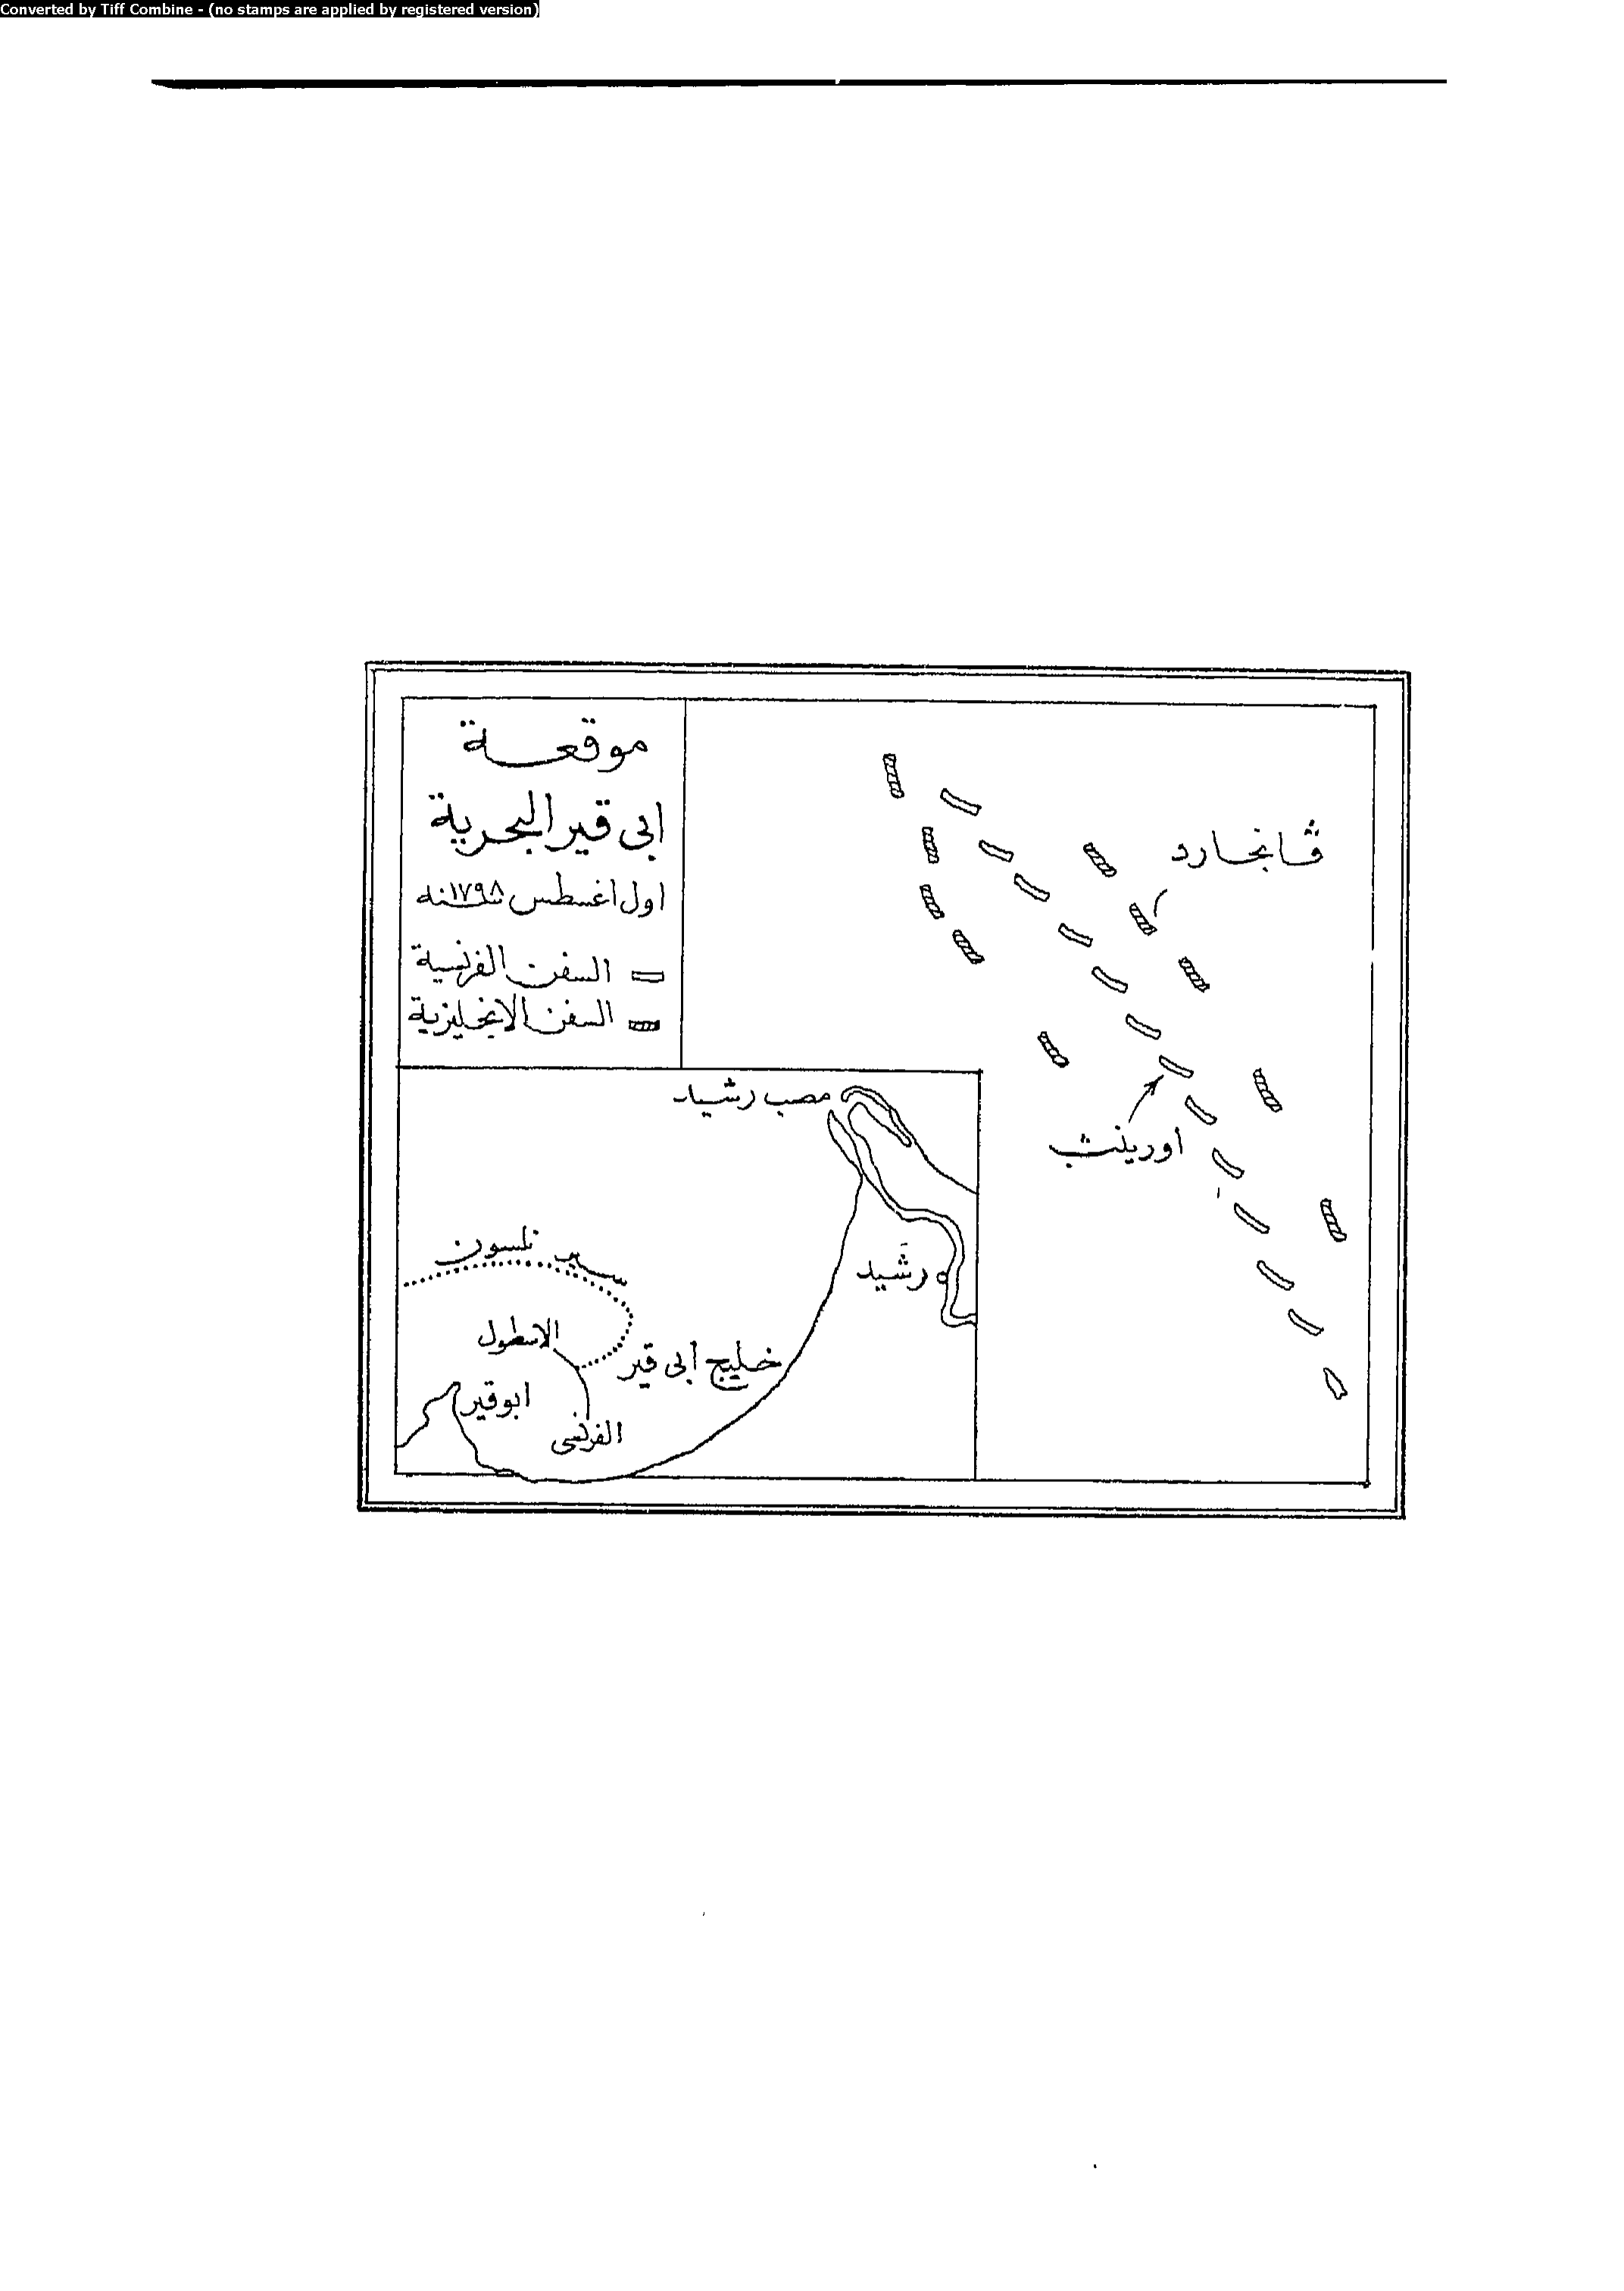 Converted by Tiff Combine - (no stamps are applied by registered version)
موقعة
ابى قير البحرية
اول اغسطس سنة ١٧٩٨
السفن الفرنسية
السفن الإنجليزية
ڤانجارد
اورينت
مصب رشيد
رشيد
سير نلسون
الاسطول
الفرنسى
خليج أبى قير
ابو قير